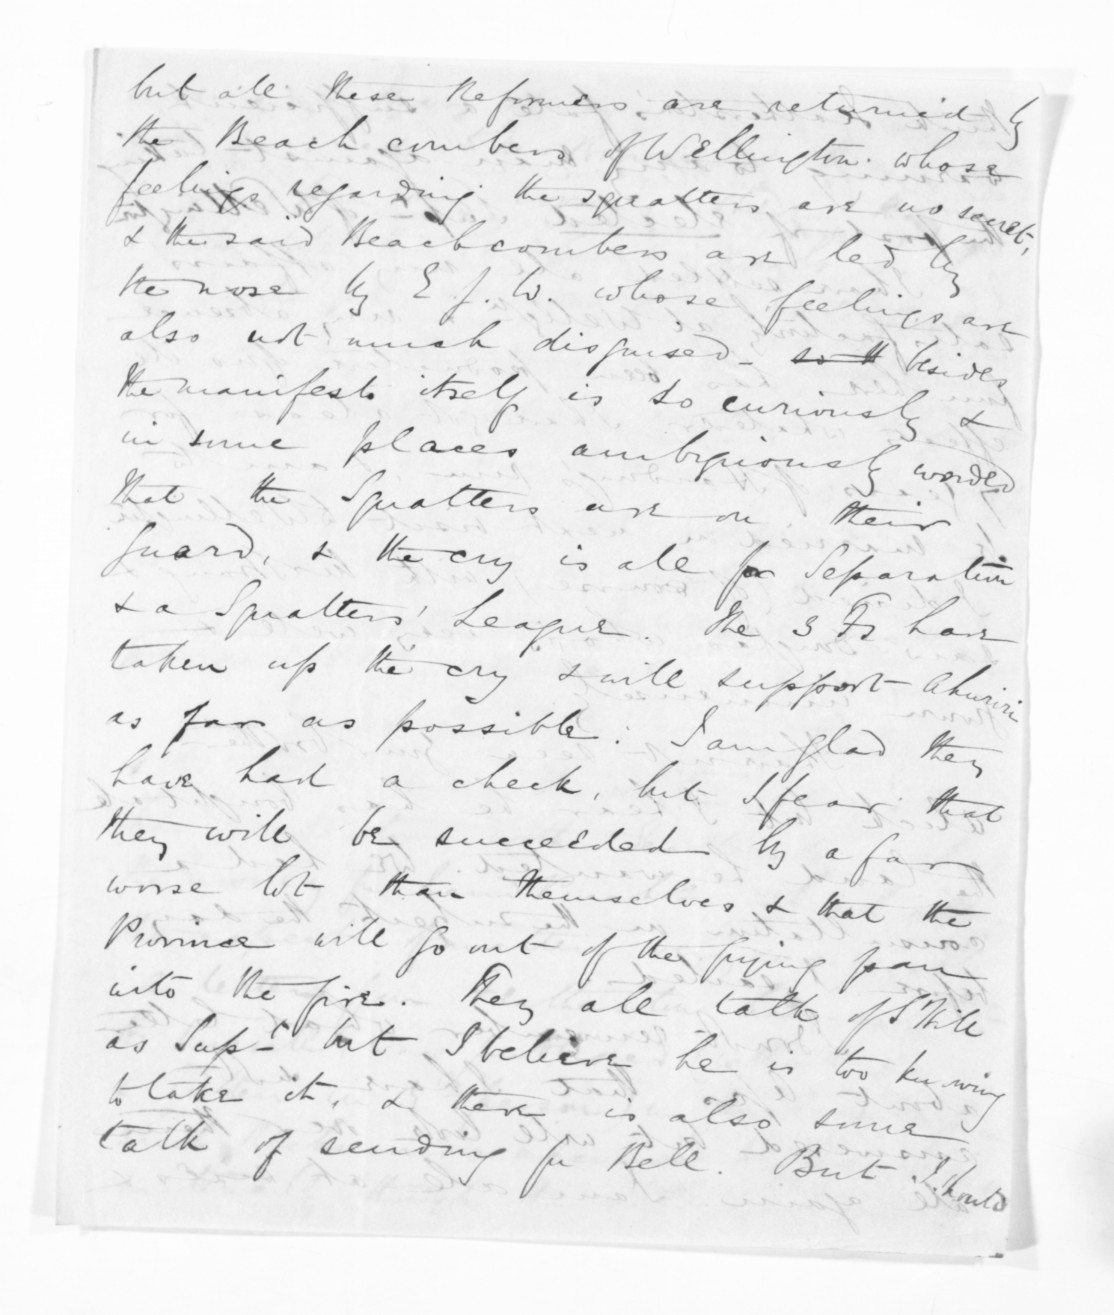 but all these Reformers are returned by
the Beach combers of Wellington whose
feelings regarding the squatters are no secret,
& the said Beachcombers are led by
the nose by E. J. W. whose feelings are
also not much disguised - besides
the manifesto itself is so curiously &
in some places ambiguously worded
that the Squatters are on their
guard, & the cry is all for Separation
& a Squatters' League. The 3 Fs have
taken up the cry & will support Ahuriri
as far as possible. I am glad they
have had a check, but I fear that
they will be succeeded by a far
worse lot than themselves & that the
Province will go out of the frying pan
into the fire. They all talk of St Hill
as Supt but I believe he is too knowing
to take it, & there is also some
talk of sending for Bell. But I should